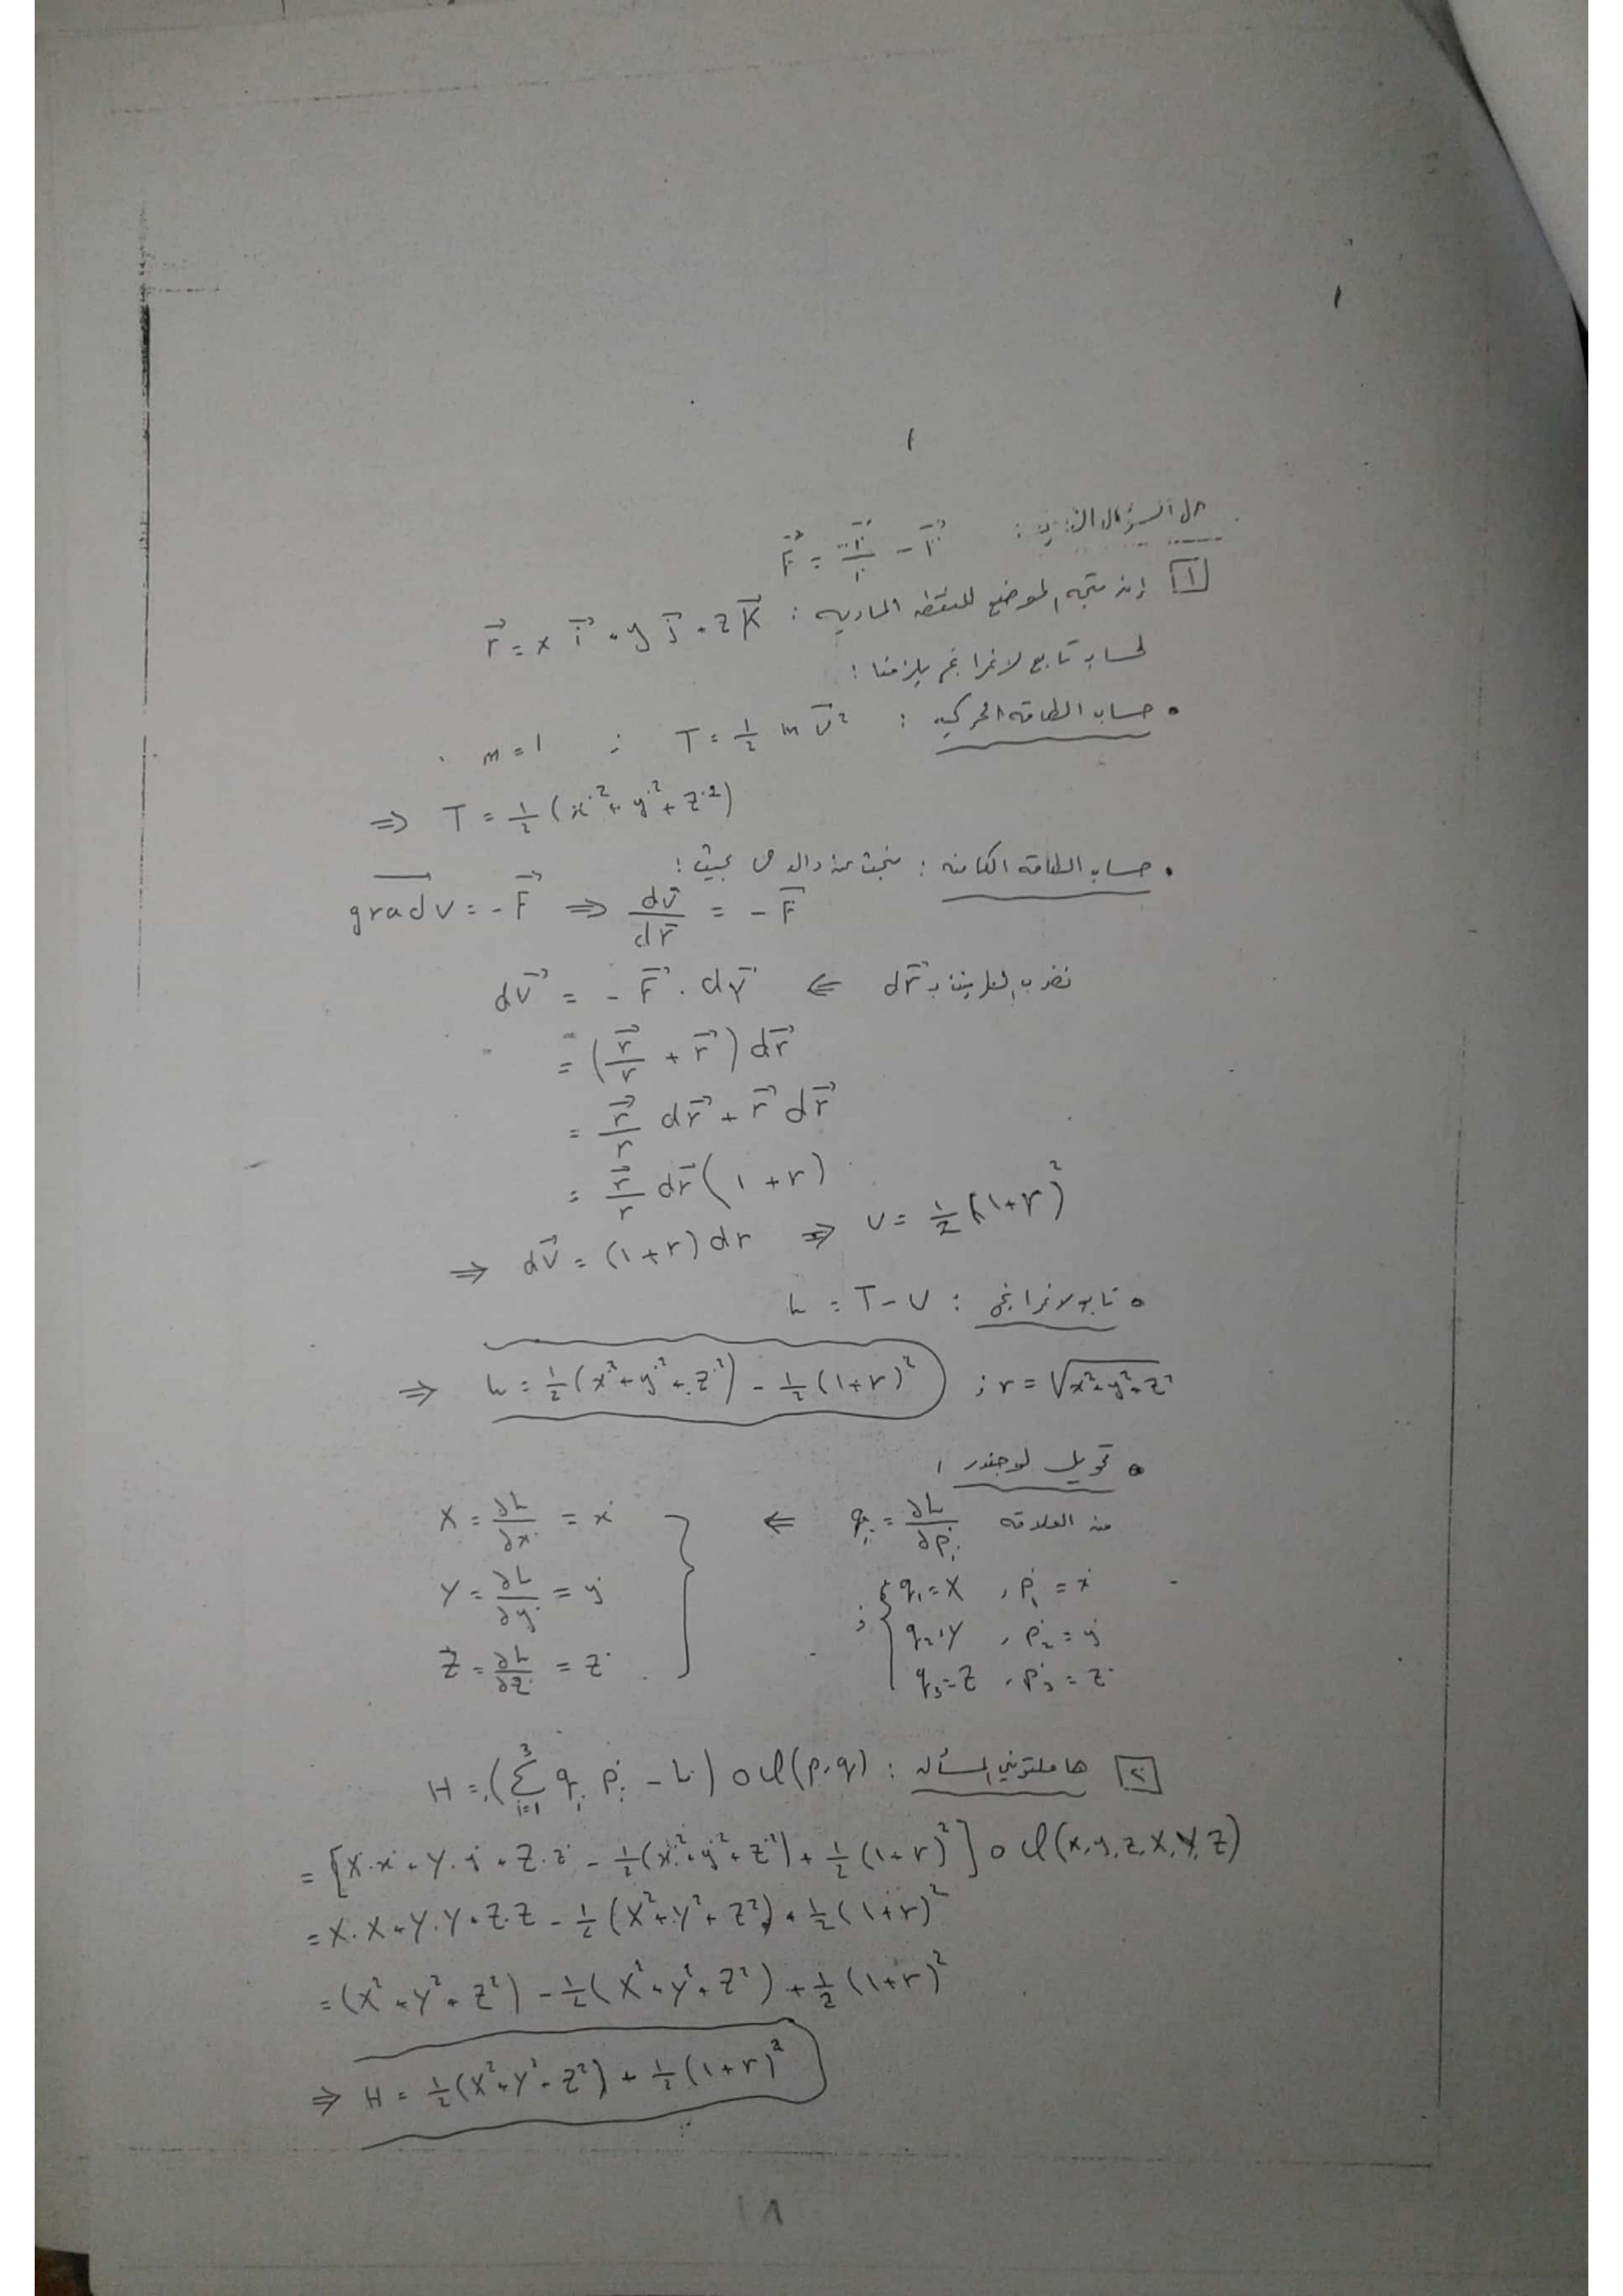 حل السؤال الثاني : F⃗ = r⃗/r − r⃗
[1] إن متجه الموضع للنقطة المادية : r⃗ = x i⃗ + y j⃗ + z k⃗
لحساب تابع لاغرانج يلزمنا :
• حساب الطاقة الحركية : T = 1/2 m v⃗² ; m = 1
⇒ T = 1/2 (ẋ² + ẏ² + ż²)
• حساب الطاقة الكامنة : نبحث عن دالة بحيث :
grad v = − F⃗ ⇒ dv⃗/dr⃗ = − F⃗
نضرب الطرفين بـ dr⃗ ⇐ dv⃗ = − F⃗ . dr⃗
= (r⃗/r + r⃗) dr⃗
= r⃗/r dr⃗ + r⃗ dr⃗
= r⃗/r dr⃗ (1 + r)
⇒ dv⃗ = (1 + r) dr ⇒ v = 1/2 (1 + r)²
• تابع لاغرانج : L = T − U
⇒ L = 1/2 (ẋ² + ẏ² + ż²) − 1/2 (1 + r)² ; r = √x² + y² + z²
• تحويل لوجندر :
من العلاقة qᵢ = ∂L/∂ṗᵢ ⇐ X = ∂L/∂ẋ = ẋ
q₁ = X , ṗ₁ = ẋ Y = ∂L/∂ẏ = ẏ
q₂ = Y , ṗ₂ = ẏ
q₃ = Z , ṗ₃ = ż Z = ∂L/∂ż = ż
[2] هاملتوني المسألة : H = (∑ᵢ₌₁³ qᵢ ṗᵢ − L) o φ(p, q)
= [X.ẋ + Y.ẏ + Z.ż − 1/2 (ẋ² + ẏ² + ż²) + 1/2 (1 + r)²] o φ(x, y, z, X, Y, Z)
= X.X + Y.Y + Z.Z − 1/2 (X² + Y² + Z²) + 1/2 (1 + r)²
= (X² + Y² + Z²) − 1/2 (X² + Y² + Z²) + 1/2 (1 + r)²
⇒ H = 1/2 (X² + Y² + Z²) + 1/2 (1 + r)²
١٨